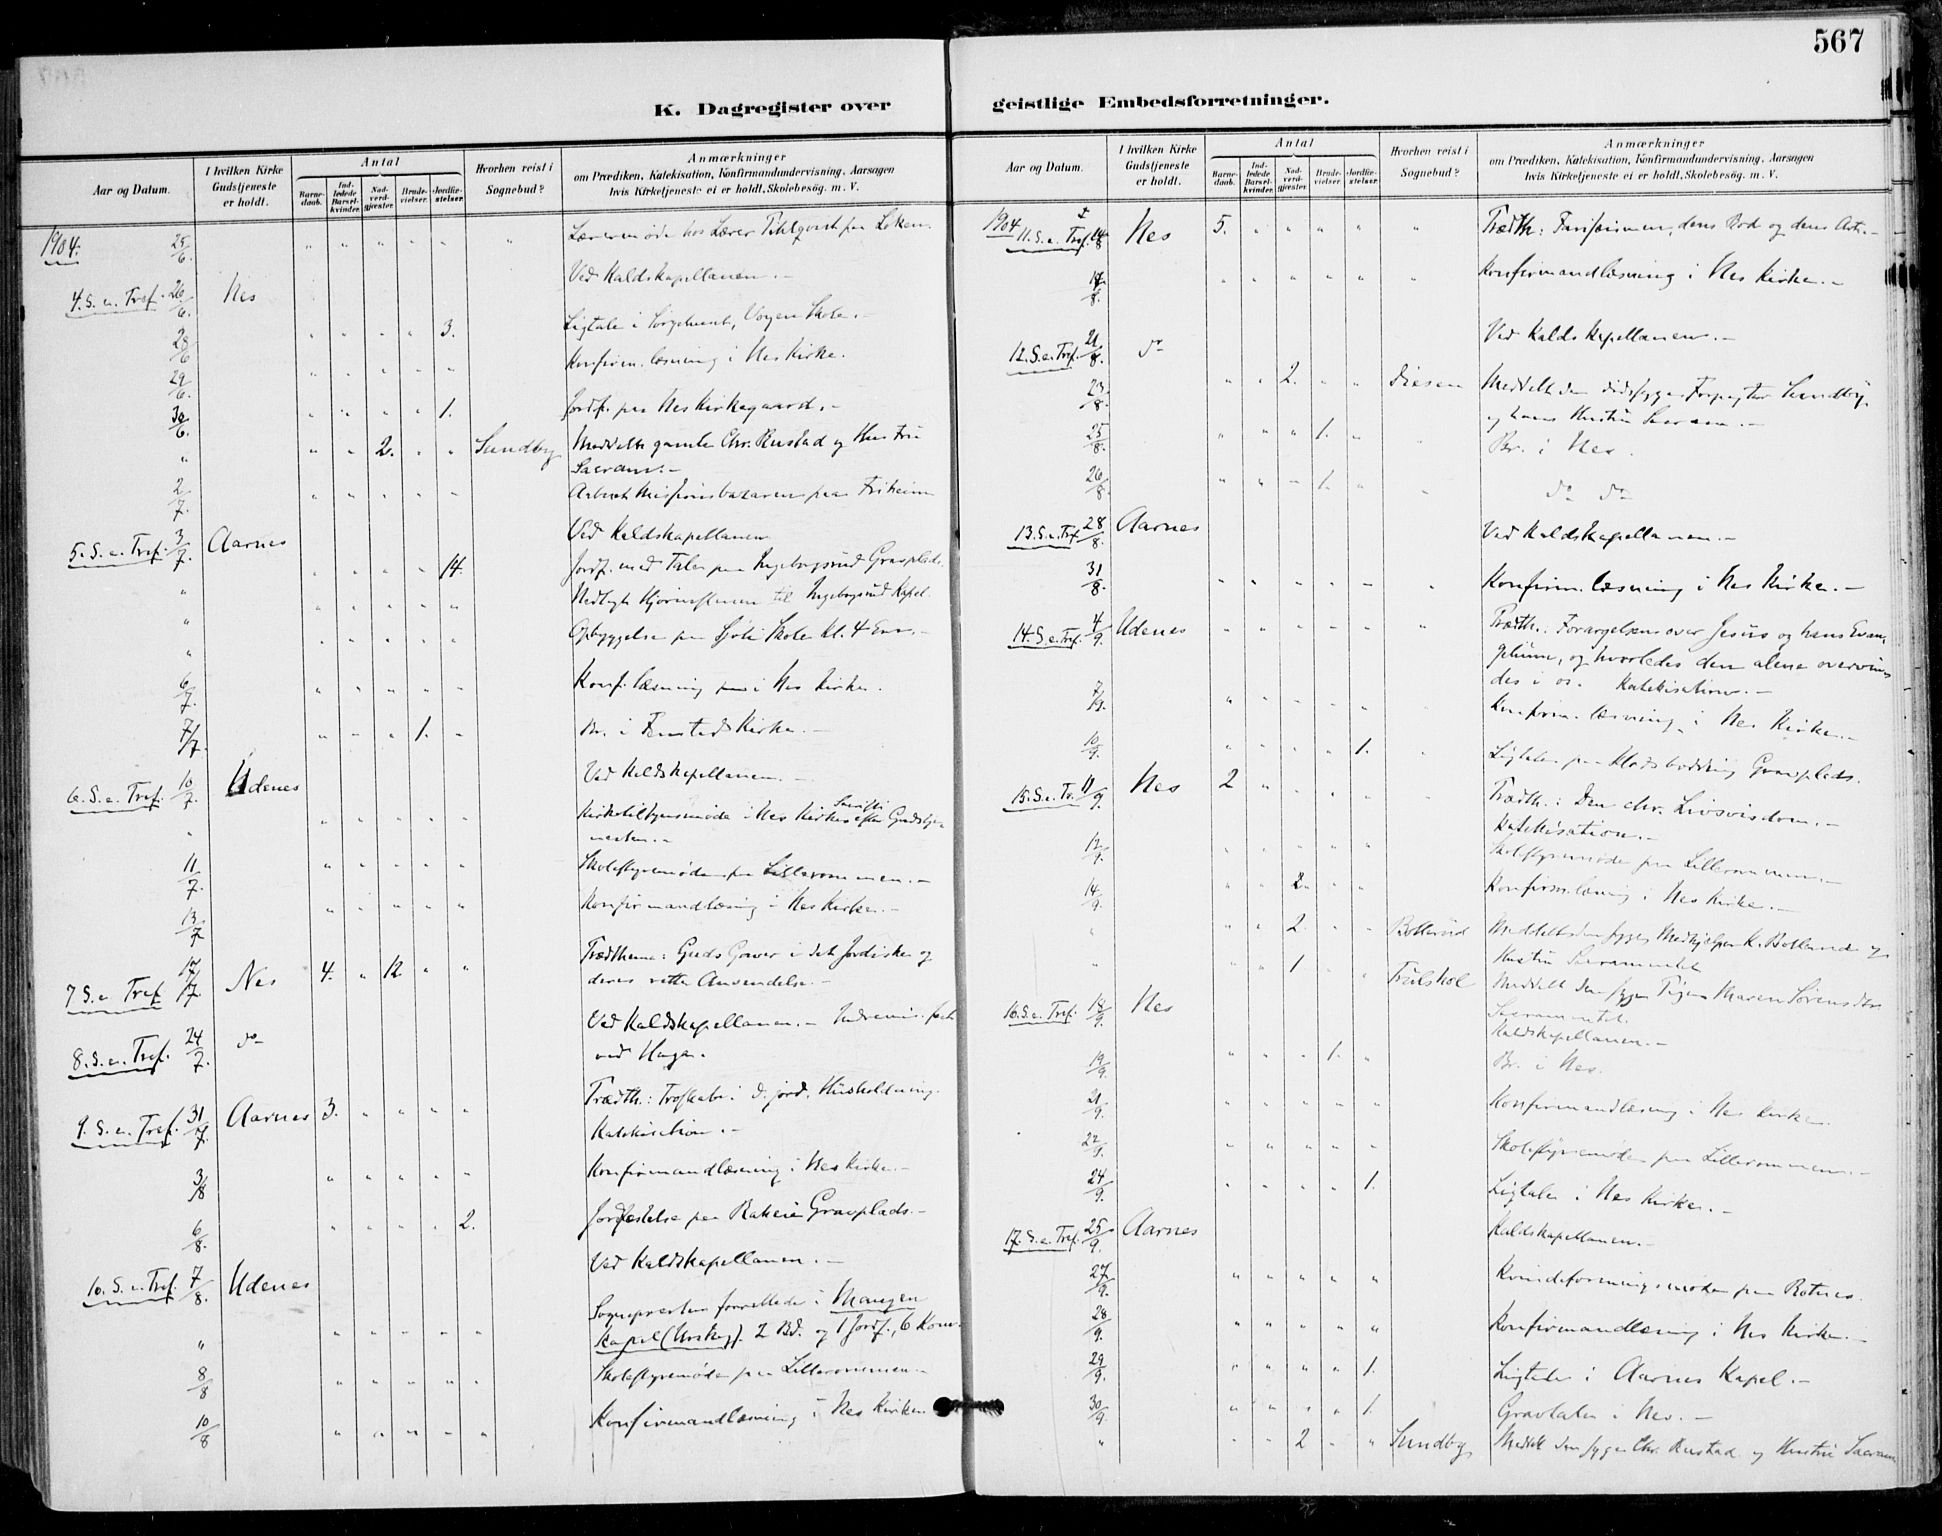 567
K. Dagregister over geistlige Embedsforretninger.
Aar og Datum.
I hvilken Kirke Gudstjeneste er holdt.
Antal
Barne-daab.
Ind-ledede Barsel-kvinder.
Nad-verd-gjæster.
Brude-vielser.
Jordfæ-stelser.
Hvorhen reist i Sognebud?
Anmærkninger
om Prædiken, Katekisation, Konfirmandundervisning, Aarsagen
hvis Kirketjeneste ei er holdt, Skolebesøg. m. V.
1904. 25/6 Lærermøde hos Lærer paa Løken.
4. S. e. Tref. 26/6 Nes Ved Kaldskapellanen.
28/6 3. Ligtale i Skole.
29/6 Konfirm. læsning i Nes Kirke.
30/6 1. Jordf. paa Nes Kirkegaard.
" 2. Sundby Meddelt gamle Chr. Rustad og Hustru
Sacram.
2/7 paa
5. S. e. Tref. 3/7 Aarnes Ved Kaldskapellanen
" 14. Jordf. med Tale paa Ingeborgsrud Gravplads.
" til Ingeborgsrud Kapel.
" Opbyggelse paa Skole Kl. 4 Em.
6/7 Konf. læsning i Nes Kirke.
7/7 1. Br. i Fensted Kirke.
6. S. e. Tref. 10/7 Udenes Ved Kaldskapellanen.
" Kirketilsynsmøde i Nes Kirkes Sacristi efter Gudstje-
nesten.
11/7 Skolestyremøde paa Lillerommen.
13/7 Konfirmandlæsning i Nes Kirke.
7. S. e. Tref. 17/7 Nes 4. " 12 " " Guds Gaver i det Jordiske og
deres rette Anvendelse.
8. S. e. Tref. 24/7 do Ved Kaldskapellanen.
ved Haga.
9. S. e. Tref. 31/7 Aarnes 3. Troskab i d. jord. Husholdning.
Katekisation.
3/8 Konfirmandlæsning i Nes Kirke.
6/8 2. Jordfæstelse paa Gravplads.
10. S. e. Tref. 7/8 Udenes Ved Kaldskapellanen.
" Sognepresten forrettede i Mangen
Kapel (Urskog). 2 Bd. og 1 Jordf., 6 Kom.
8/8 Skolestyremøde paa Lillerommen.
10/8 Konfirmandlæsning i Nes Kirke.
Aar og Datum.
I hvilken Kirke Gudstjeneste er holdt.
Antal
Barne-daab.
Ind-ledede Barsel-kvinder.
Nad-verd-gjæster.
Brude-vielser.
Jordfæ-stelser.
Hvorhen reist i Sognebud?
Anmærkninger
om Prædiken, Katekisation, Konfirmandundervisning, Aarsagen
hvis Kirketjeneste ei er holdt, Skolebesøg. m. V.
1904 11. S. e. Tref. 14/8 Nes 5. Farisæismen, dens Rod og dens Art.
17/8 Konfirmandlæsning i Nes Kirke.
12. S. e. Tref. 21/8 do Ved Kaldskapellanen.
23/8 2. Diesen Meddelt den dødssyge Forpagter Sundby
og hans Hustru Sacram.
25/8 1. Br. i Nes.
26/8 1. do do
13. S. e. Tref. 28/8 Aarnes Ved Kaldskapellanen.
31/8 Konfirm. læsning i Nes Kirke.
14. S. e. Tref. 4/9 Udenes Forargelsen over Jesus og hans Evan-
gelium, og hvorledes den alene overvin-
des i os. Katekisation.
7/9 Konfirm. læsning i Nes Kirke.
10/9 1. Ligtale paa Gravplads.
15. S. e. Tr. 11/9 Nes 2 Den chr. Livsvisdom.
Katekisation.
12/9 Skolestyremøde paa Lillerommen.
14/9 Konfirm. læsning i Nes Kirke.
" 2. Bollerud Meddelt den syge Medhjælper K. Bollerud og
Hustru Sacramentet
" 1 Meddelt den syge Pige Maren Sørensdtr.
Sacramentet.
16. S. e. Tref. 18/9 Nes Kaldskapellanen.
19/9 1. Br. i Nes.
21/9 Konfirmandlæsning i Nes Kirke.
22/9 Skolestyremøde paa Lillerommen.
24/9 1. Ligtale i Nes Kirke.
17. S. e. Tref. 25/9 Aarnes Kaldskapellanen.
27/9 paa Rotnes.
28/9 Konfirmandlæsning i Nes Kirke.
29/9 1. Ligtale i Aarnes Kapel.
30/9 1. Gravtale i Nes.
" 2 Sundby Meddelt den syge Chr. Rustad og Hustru Sacram.